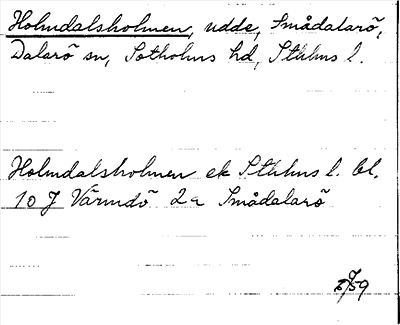 Holmdalsholmen, udde, Smådalarö,
Dalarö sn, Sotholms hd, Sthlms l.
Holmdalsholmen ek Sthlms l. bl.
10 J Värmdö 2a Smådalarö